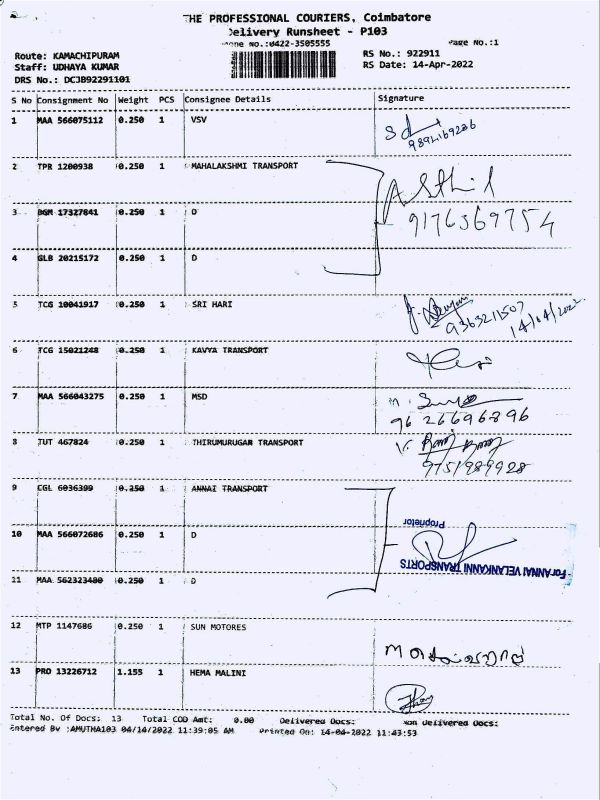 THE PROFESSIONAL COURIERS, Coimbatore
Delivery Runsheet - P103
Phone No.:0422-3505555 Page No.:1
Route: KAMACHIPURAM RS No.: 922911
Staff: UDHAYA KUMAR RS Date: 14-Apr-2022
DRS No.: DCJB92291101
S No Consignment No Weight PCS Consignee Details Signature
1 MAA 566075112 0.250 1 VSV
9894169286
2 TPR 1200938 0.250 1 MAHALAKSHMI TRANSPORT
9176369754
3 BGM 17327841 0.250 1 D
4 GLB 20215172 0.250 1 D
5 TCG 10041917 0.250 1 SRI HARI
9363211507
14/04/2022
6 TCG 15021248 0.250 1 KAVYA TRANSPORT
7 MAA 566043275 0.250 1 MSD
9626696896
8 TUT 467824 0.250 1 THIRUMURUGAN TRANSPORT
9751989928
9 CGL 6036399 0.250 1 ANNAI TRANSPORT
10 MAA 566072686 0.250 1 D
Proprietor
For ANNAI VELANKANNI TRANSPORTS
11 MAA 562323480 0.250 1 D
12 MTP 1147686 0.250 1 SUN MOTORES
13 PRO 13226712 1.155 1 HEMA MALINI
Total No. Of Docs: 13 Total COD Amt: 0.00 Delivered Docs: Non Delivered Docs:
Entered By :AMUTHA103 04/14/2022 11:39:05 AM Printed On: 14-04-2022 11:43:53